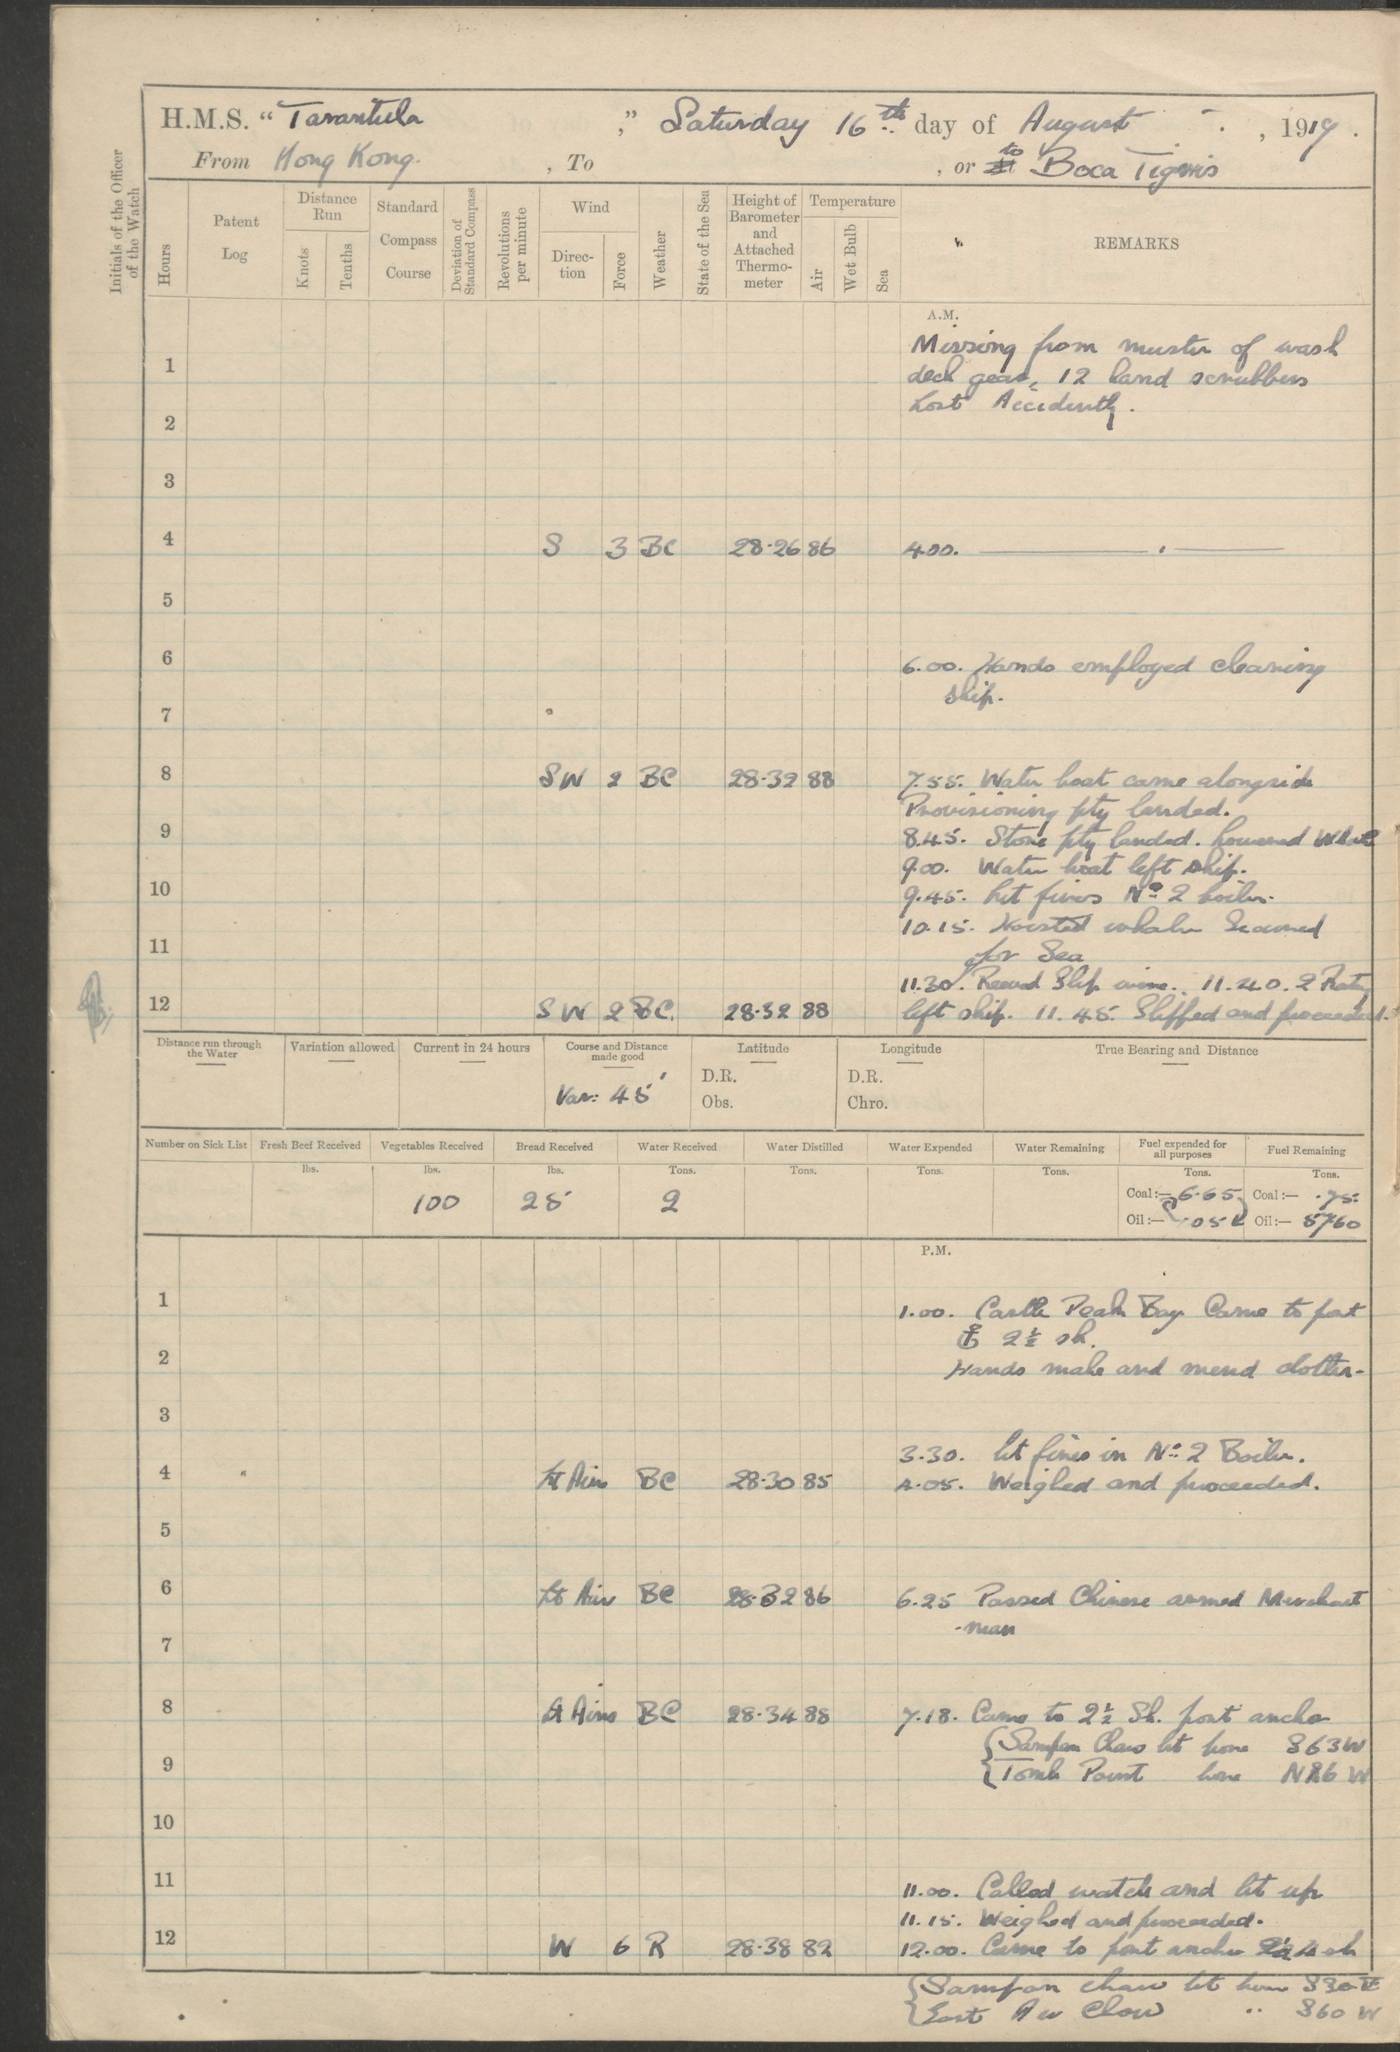 H.M.S. “Tarantula ,” Saturday 16th day of August , 1919.
From Hong Kong. , To , or to Boca Tigris
Initials of the Officer of the Watch
Hours
Patent Log
Distance Run
Knots
Tenths
Standard Compass Course
Deviation of Standard Compass
Revolutions per minute
Wind
Direc-tion
Force
Weather
State of the Sea
Height of Barometer and Attached Thermo-meter
Temperature
Air
Wet Bulb
Sea
REMARKS
A.M.
Missing from muster of wash
1
deck gear, 12 hand scrubbers
Lost Accidently.
2
3
4 S 3 BC 28.26 86 4.00.
5
6 6.00. Hands employed cleaning
ship.
7
8 SW 2 BC 28.32 88 7.55. Water boat came alongside
Provisioning pty landed.
9 8.45. Store pty landed. Lowered
9.00. Water boat left ship.
10 9.45. Lit fires No 2 boiler.
10.15. Hoisted whaler Secured
11 for Sea
11.30. Reeved Slip wire. 11.40. 2 Raty
12 SW 2 BC. 28.32 88 left ship. 11.45. Slipped and proceeded.
Distance run through the Water
Variation allowed
Current in 24 hours
Course and Distance made good
Latitude
Longitude
True Bearing and Distance
Var: 45'
D.R.
Obs.
D.R.
Chro.
Number on Sick List
Fresh Beef Received
Vegetables Received
Bread Received
Water Received
Water Distilled
Water Expended
Water Remaining
Fuel expended for all purposes
Fuel Remaining
lbs. lbs. lbs. Tons. Tons. Tons. Tons. Tons. Tons.
100 25 2
Coal:— 6.65 Coal:— .75
Oil:— .05 Oil:— 5760
P.M.
1 1.00. Castle Peak Bay Came to port
⚓ 2½ sh.
2 Hands make and mend clothes.
3
3.30. Lit fires in No 2 Boiler.
4 Lt Airs BC 28.30 85 4.05. Weighed and proceeded.
5
6 Lt Air BC 28.32 86 6.25 Passed Chinese armed Merchant
-man
7
8 Lt Airs BC 28.34 85 7.18. Came to 2½ Sh. port anchor
{Sampan Chow lt bore S63W
9 {Tomb Point bore N86 W
10
11 11.00. Called watch and lit up
11.15. Weighed and proceeded.
12 W 6 R 28.38 82 12.00. Came to port anchor 4 sh
{Sampan Chow lt bore
{East Chow " S60 W